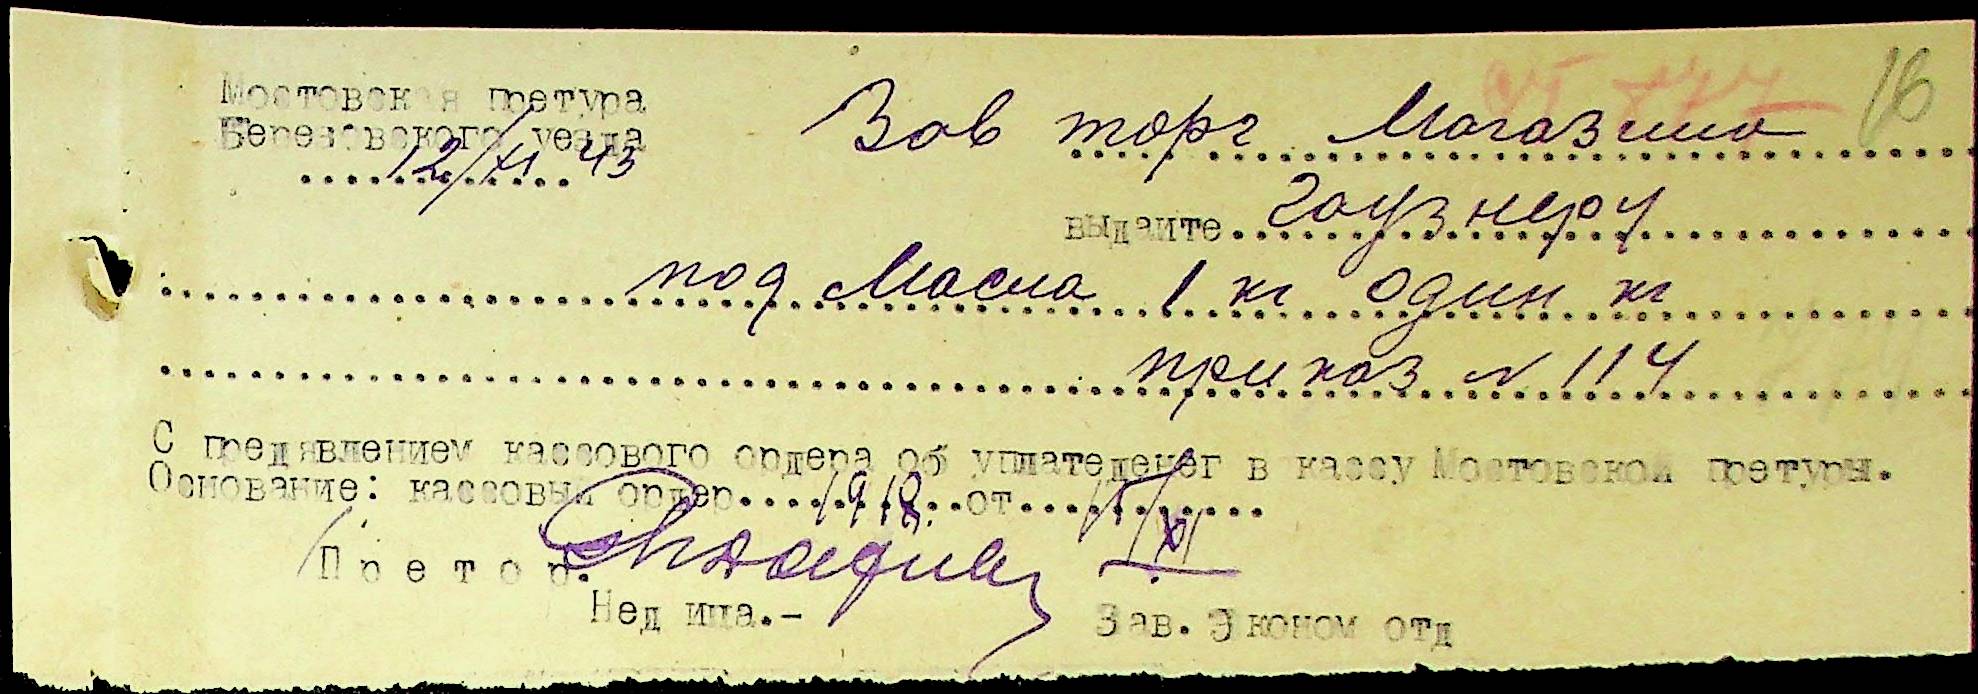 16
Мостовская претура
Березовского уезда
12/XI 43
Зав торг Магазина
выдаите Гаузнеру
под Масла 1 кг один кг
приказ N 114
С предявлением кассового ордера об уплатеденег в кассу Мостовской претуры.
Основание: кассовый ордер 1918. от 15/XI
Претор.
Недица.-
Зав. Эконом отд